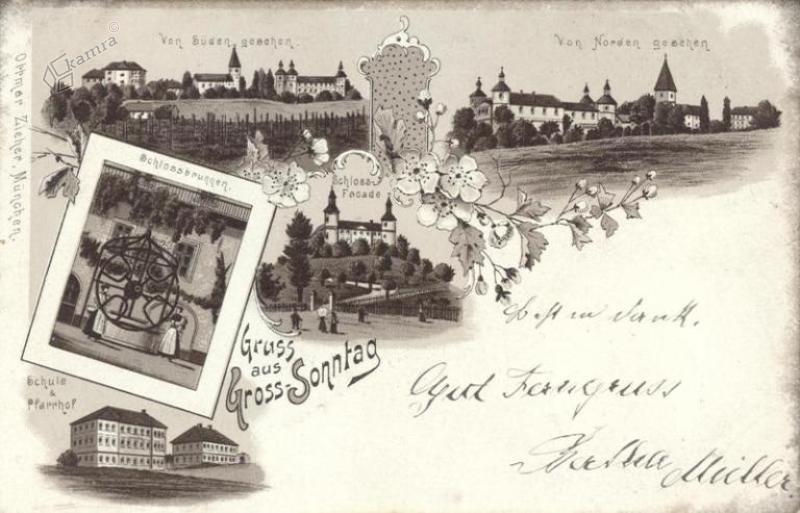 kamra
Von Süden gesehen.
Von Norden gesehen
Ottmar Zieher, München.
Schlossbrunnen.
Schloss-
Facade
Gruss
aus
Gross-Sonntag
Schule
&
Pfarrhof
dank.
Müller